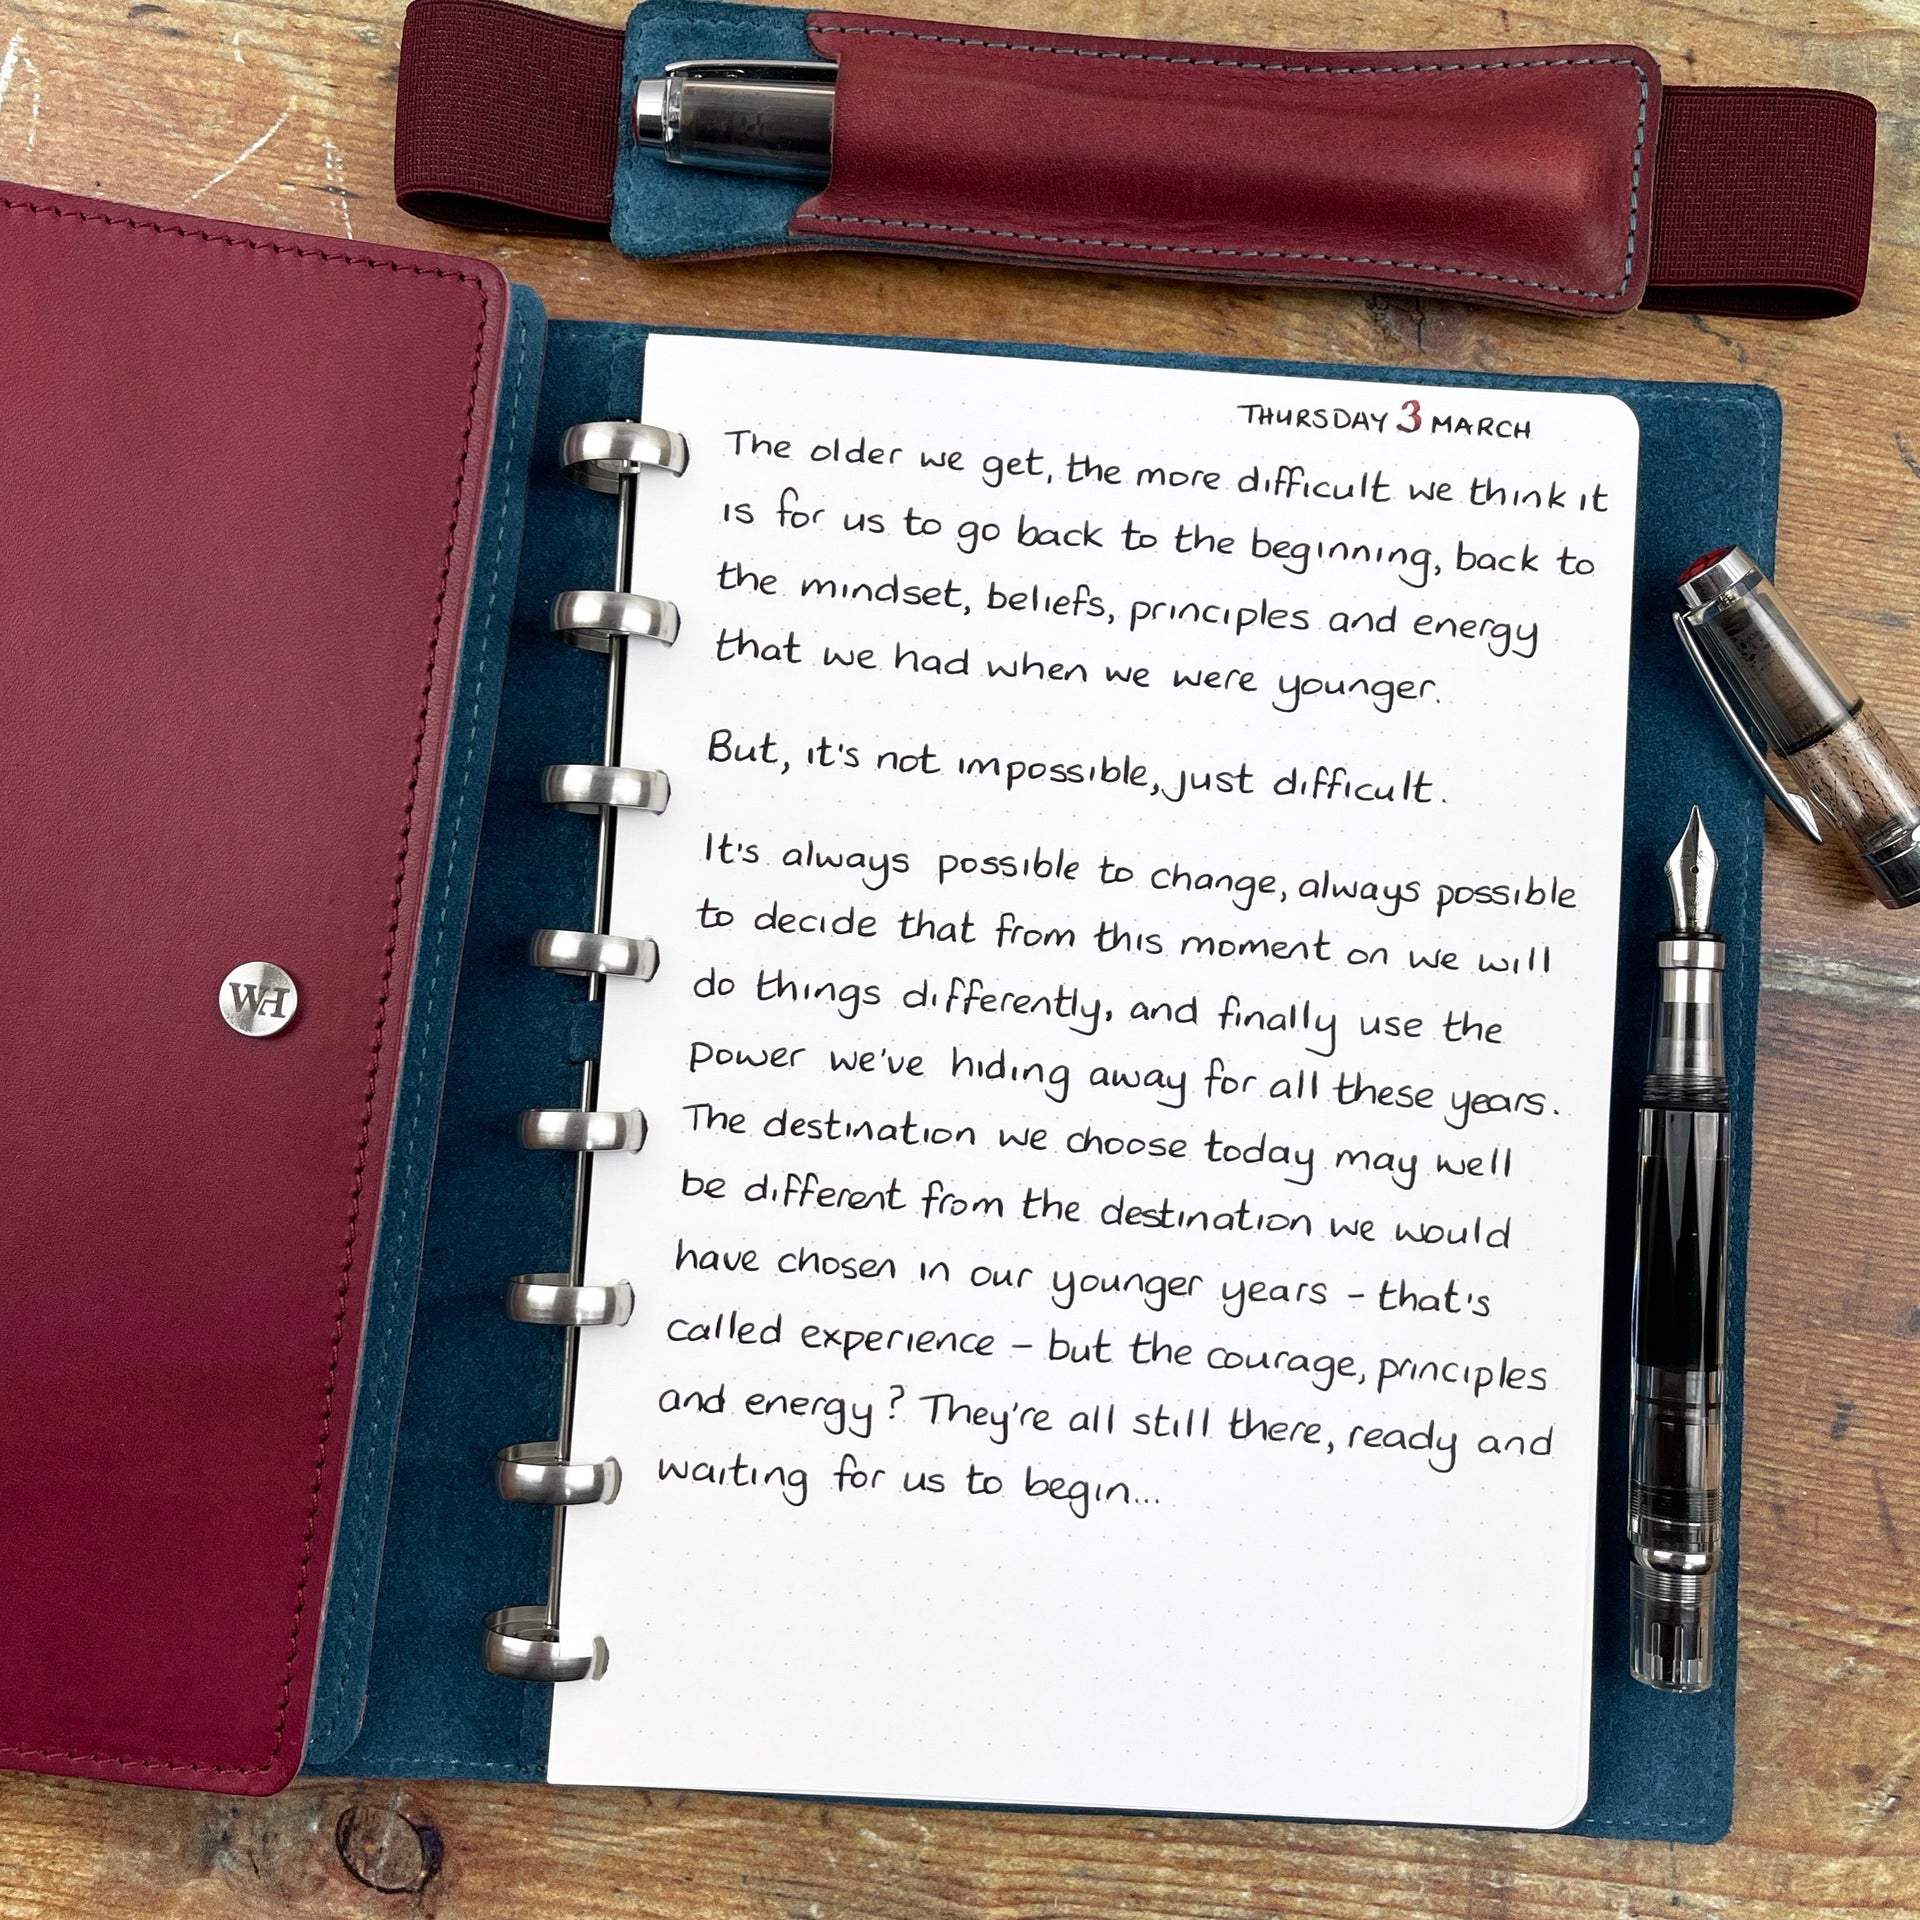 THURSDAY 3 MARCH
The older we get, the more difficult we think it
is for us to go back to the beginning, back to
the mindset, beliefs, principles and energy
that we had when we were younger.
But, it's not impossible, just difficult.
It's always possible to change, always possible
to decide that from this moment on we will
do things differently, and finally use the
power we've hiding away for all these years.
The destination we choose today may well
be different from the destination we would
have chosen in our younger years - that's
called experience - but the courage, principles
and energy? They're all still there, ready and
waiting for us to begin...
WH